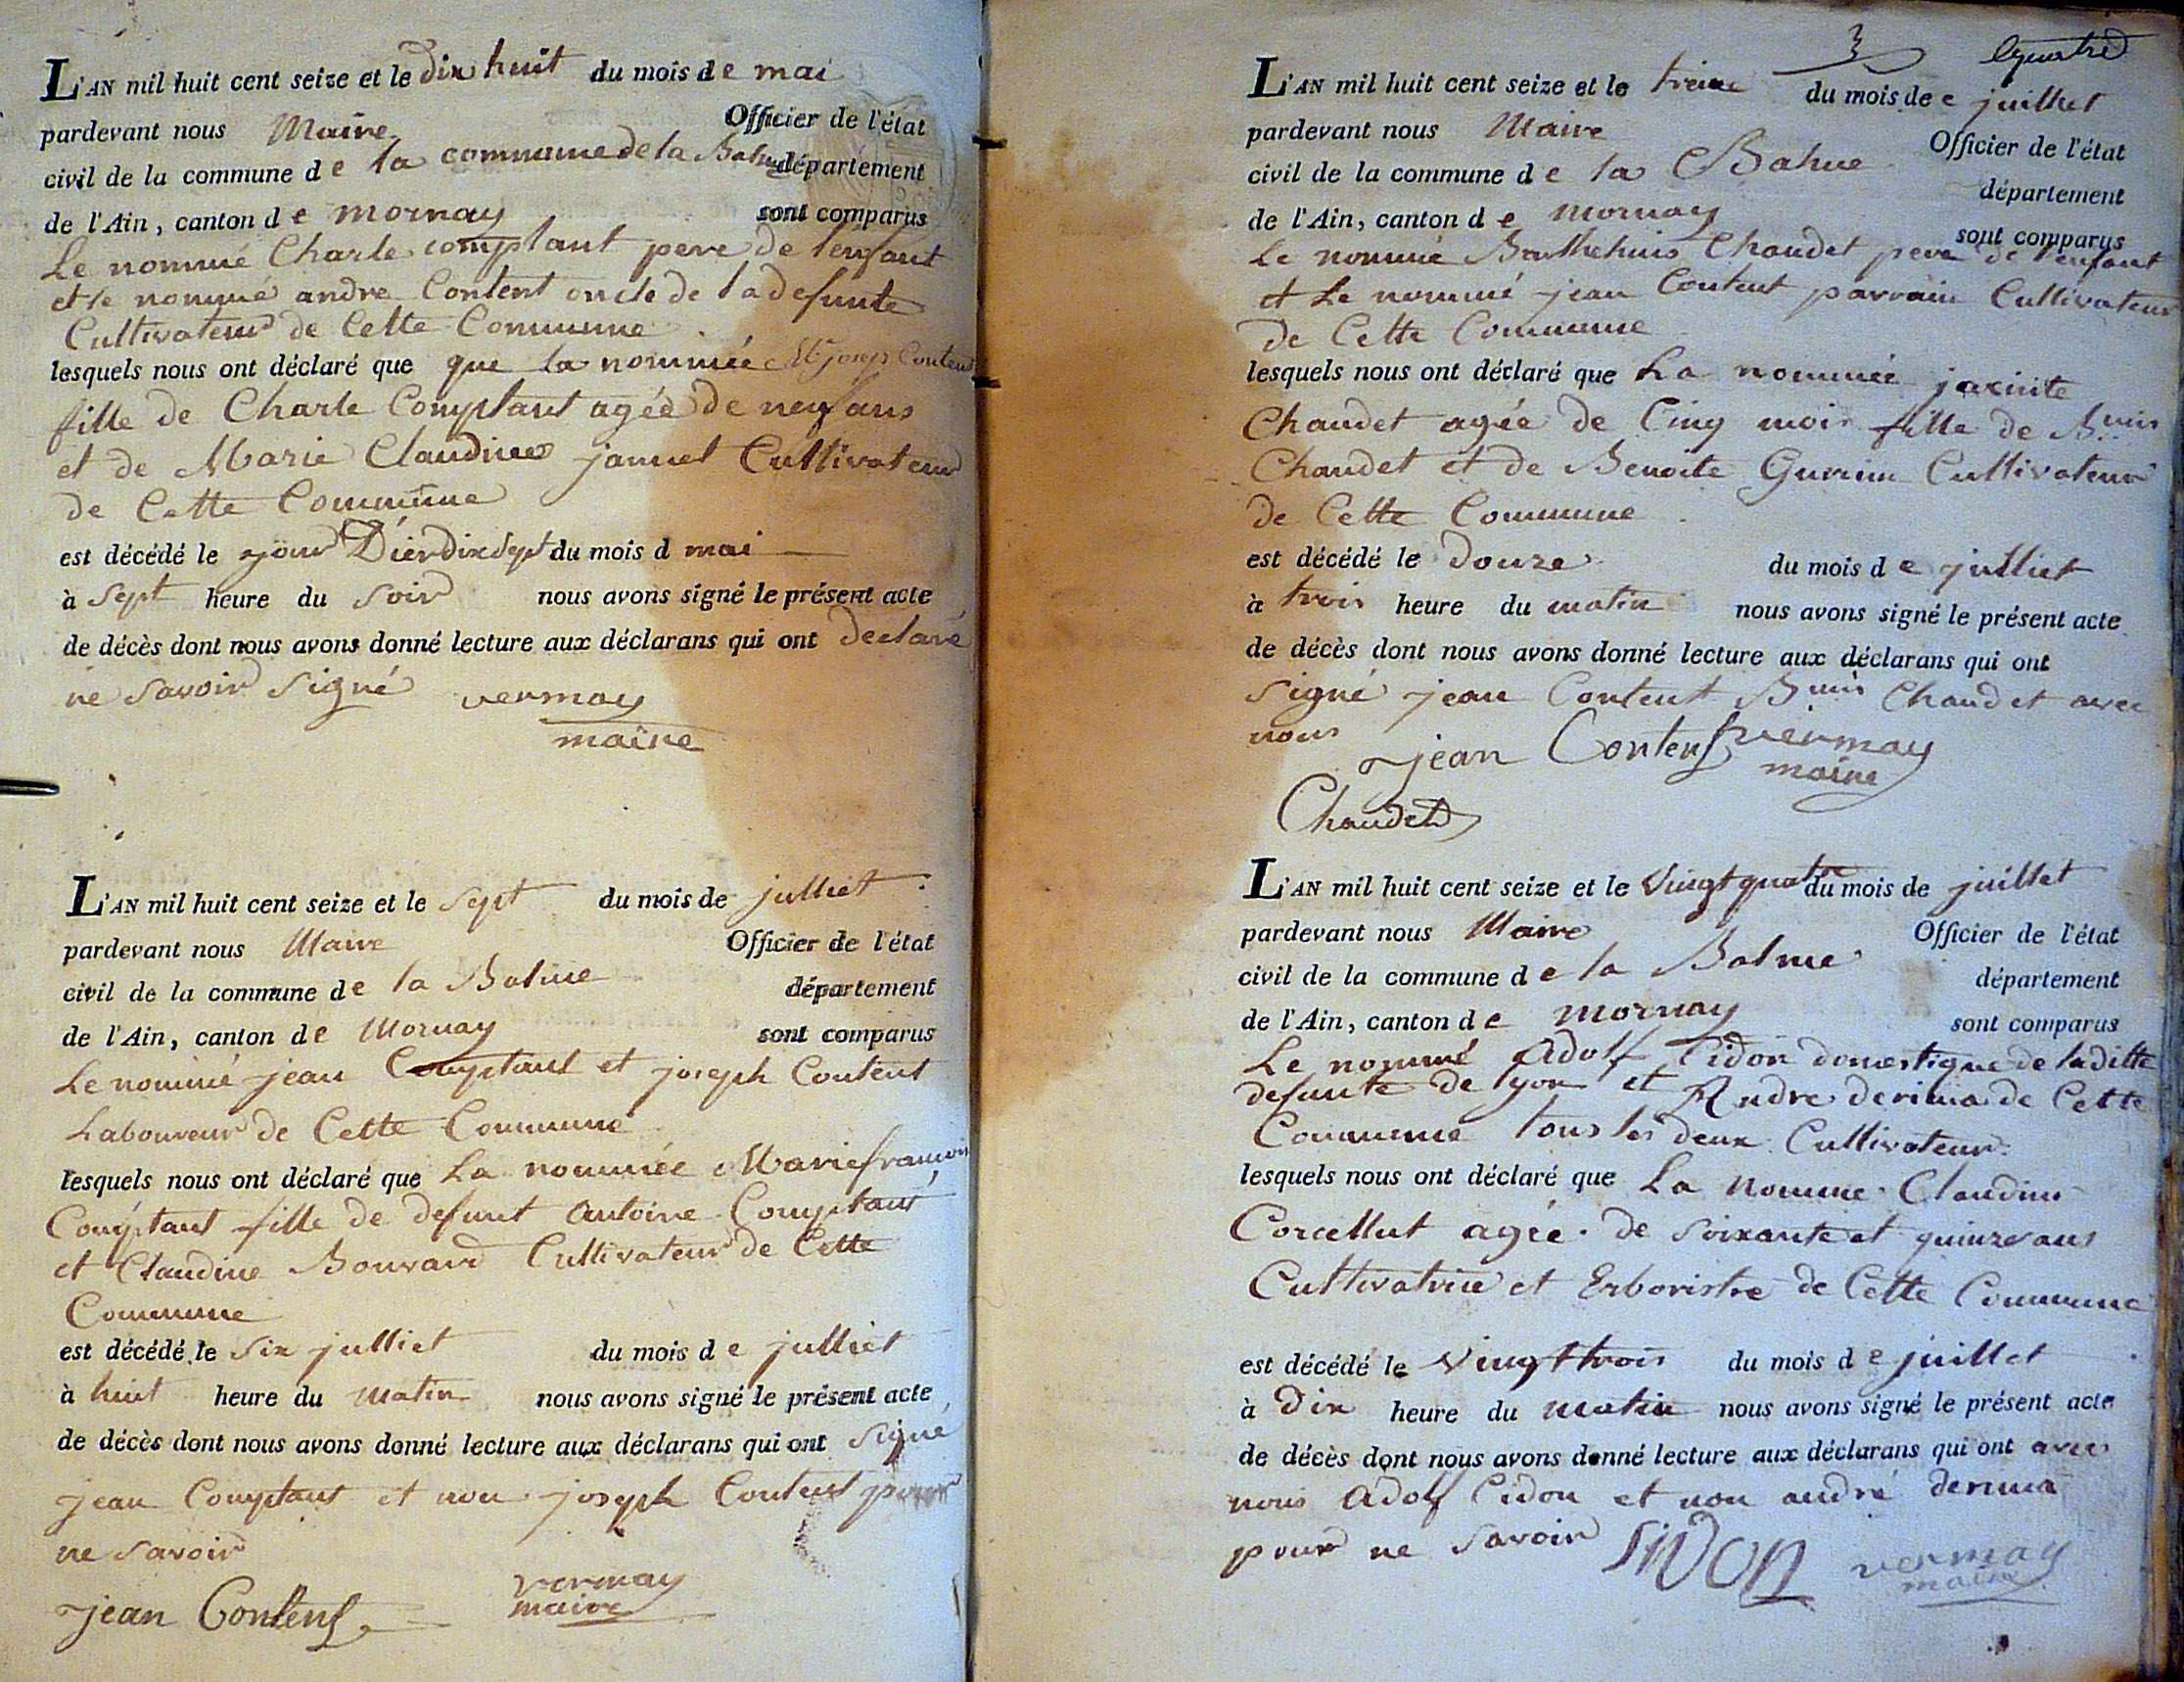 L'AN mil huit cent seize et le Dix huit du mois de mai
pardevant nous Maire Officier de l'état
civil de la commune de la commune de la Balme département
de l'Ain, canton de mornay sont comparus
Le nommé Charle comptant pere de lenfant
et le nommé andre Content oncle de la defunte
Cultivateur de Cette Commune
lesquels nous ont déclaré que que la nommée Mie joseph Content
fille de Charle Comptant agée de neuf ans
et de Marie Claudine jannet Cultivateur
de Cette Commune
est décédé le jour D'ier dix sept du mois d mai
à Sept heure du Soir nous avons signé le présent acte
de décès dont nous avons donné lecture aux déclarans qui ont declaré
ne Savoir Signé vermay
maire
L'AN mil huit cent seize et le Sept du mois de julliet
pardevant nous Maire Officier de l'état
civil de la commune de la Balme département
de l'Ain, canton de Mornay sont comparus
Le nommé jean Comptant et joseph Content
Laboureur de Cette Commune
lesquels nous ont déclaré que La nommée Marie francois
Comptant fille de defunt antoine Comptant
et Claudine Bouvard Cultivateur de Cette
Commune
est décédé le Six julliet du mois de julliet
à huit heure du matin nous avons signé le présent acte
de décès dont nous avons donné lecture aux déclarans qui ont Signé
jean Comptant et non joseph Content pour
ne Savoir
jean Content vermay
maire
3
L'AN mil huit cent seize et le treize du mois de e juillet
pardevant nous Maire Officier de l'état
civil de la commune de la Balme département
de l'Ain, canton de Mornay sont comparus
Le nommé Barthelmis Chaudet pere de l'enfant
et Le nommé jean Content parrain Cultivateur
de Cette Commune
lesquels nous ont déclaré que La nommée jacinte
Chaudet agée de Cinq mois fille de Bmis
Chaudet et de Benoite Cultivateur
de Cette Commune
est décédé le Douze du mois de julliet
à trois heure du matin nous avons signé le présent acte
de décès dont nous avons donné lecture aux déclarans qui ont
Signé jean Content Bmis Chaudet avec
nous jean Content vermay
maire
Chaudet
L'AN mil huit cent seize et le Vingt quatre du mois de juillet
pardevant nous Maire Officier de l'état
civil de la commune de la Balme département
de l'Ain, canton de mornay sont comparus
Le nommé Adolf Cidon domestique de laditte
defunte de lyon et Andre derima de Cette
Commune tous les deux Cultivateur
lesquels nous ont déclaré que La Nomme Claudine
Corcellut agée de Soixante et quinze ans
Cultivatrice et Erboriste de Cette Commune
est décédé le Vingt trois du mois de juillet
à Dix heure du matin nous avons signé le présent acte
de décès dont nous avons donné lecture aux déclarans qui ont avec
nous Adolf Cidon et non andré derima
pour ne Savoir SIDON vermay
maire